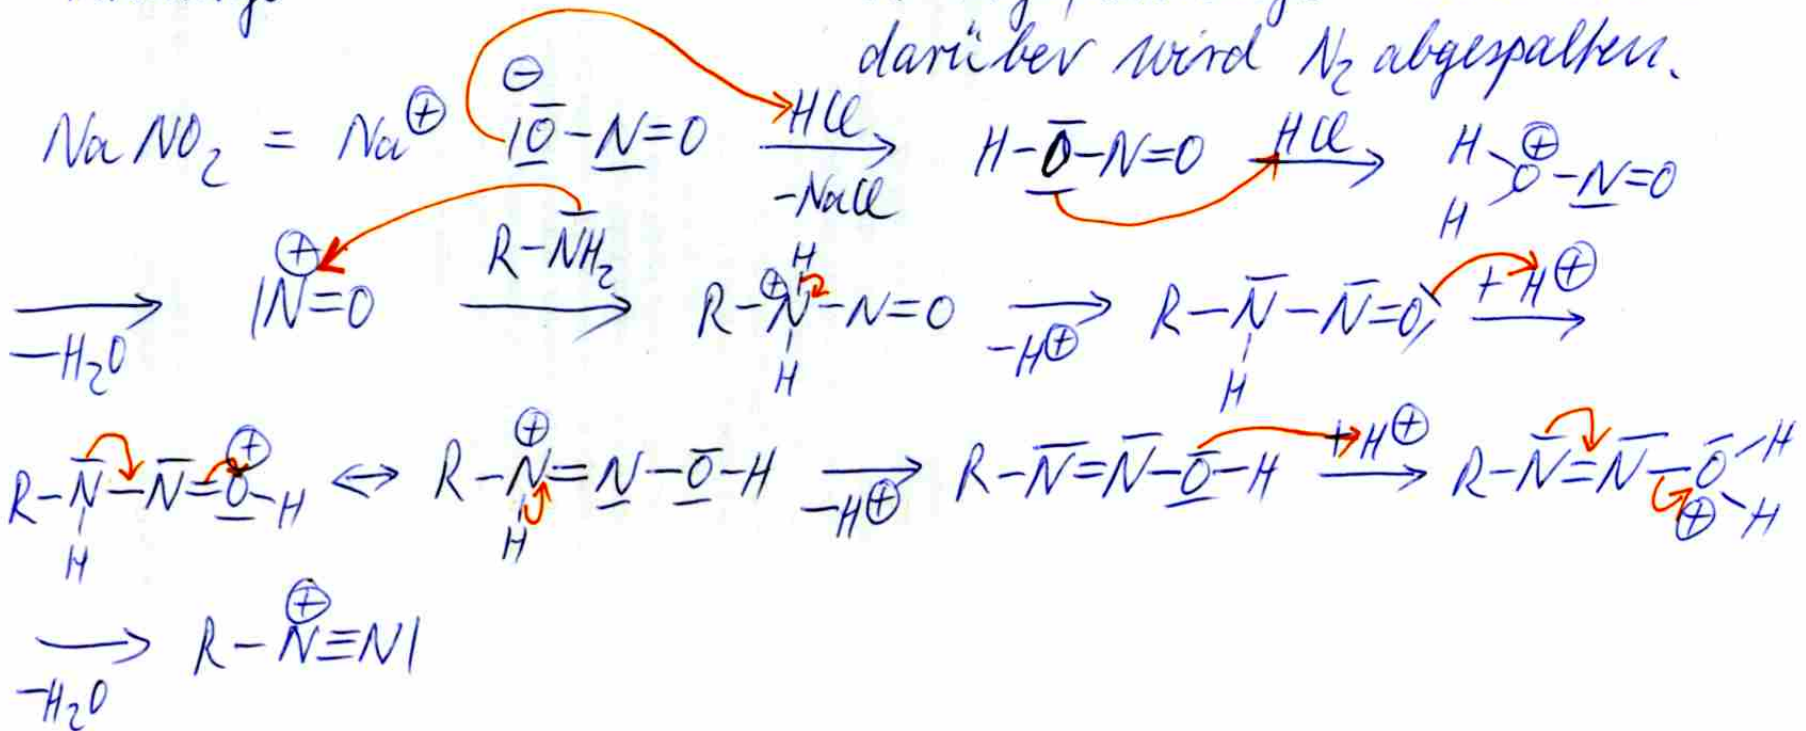 darüber wird N₂ abgespalten.
NaNO₂ = Na⊕ ⊖|O̅-N=O HCl → -NaCl H-O̅-N=O HCl → H H O⊕-N=O
→ -H₂O |N⊕=O R-N̅H₂ → R-N⊕(H)(H)-N=O → -H⊕ R-N̅(H)-N̅=O +H⊕ →
R-N̅(H)-N̅=O⊕-H ↔ R-N⊕(H)=N-O̅-H → -H⊕ R-N̅=N̅-O̅-H +H⊕ → R-N̅=N̅-O̅⊕(H)(H)
→ -H₂O R-N⊕≡N|